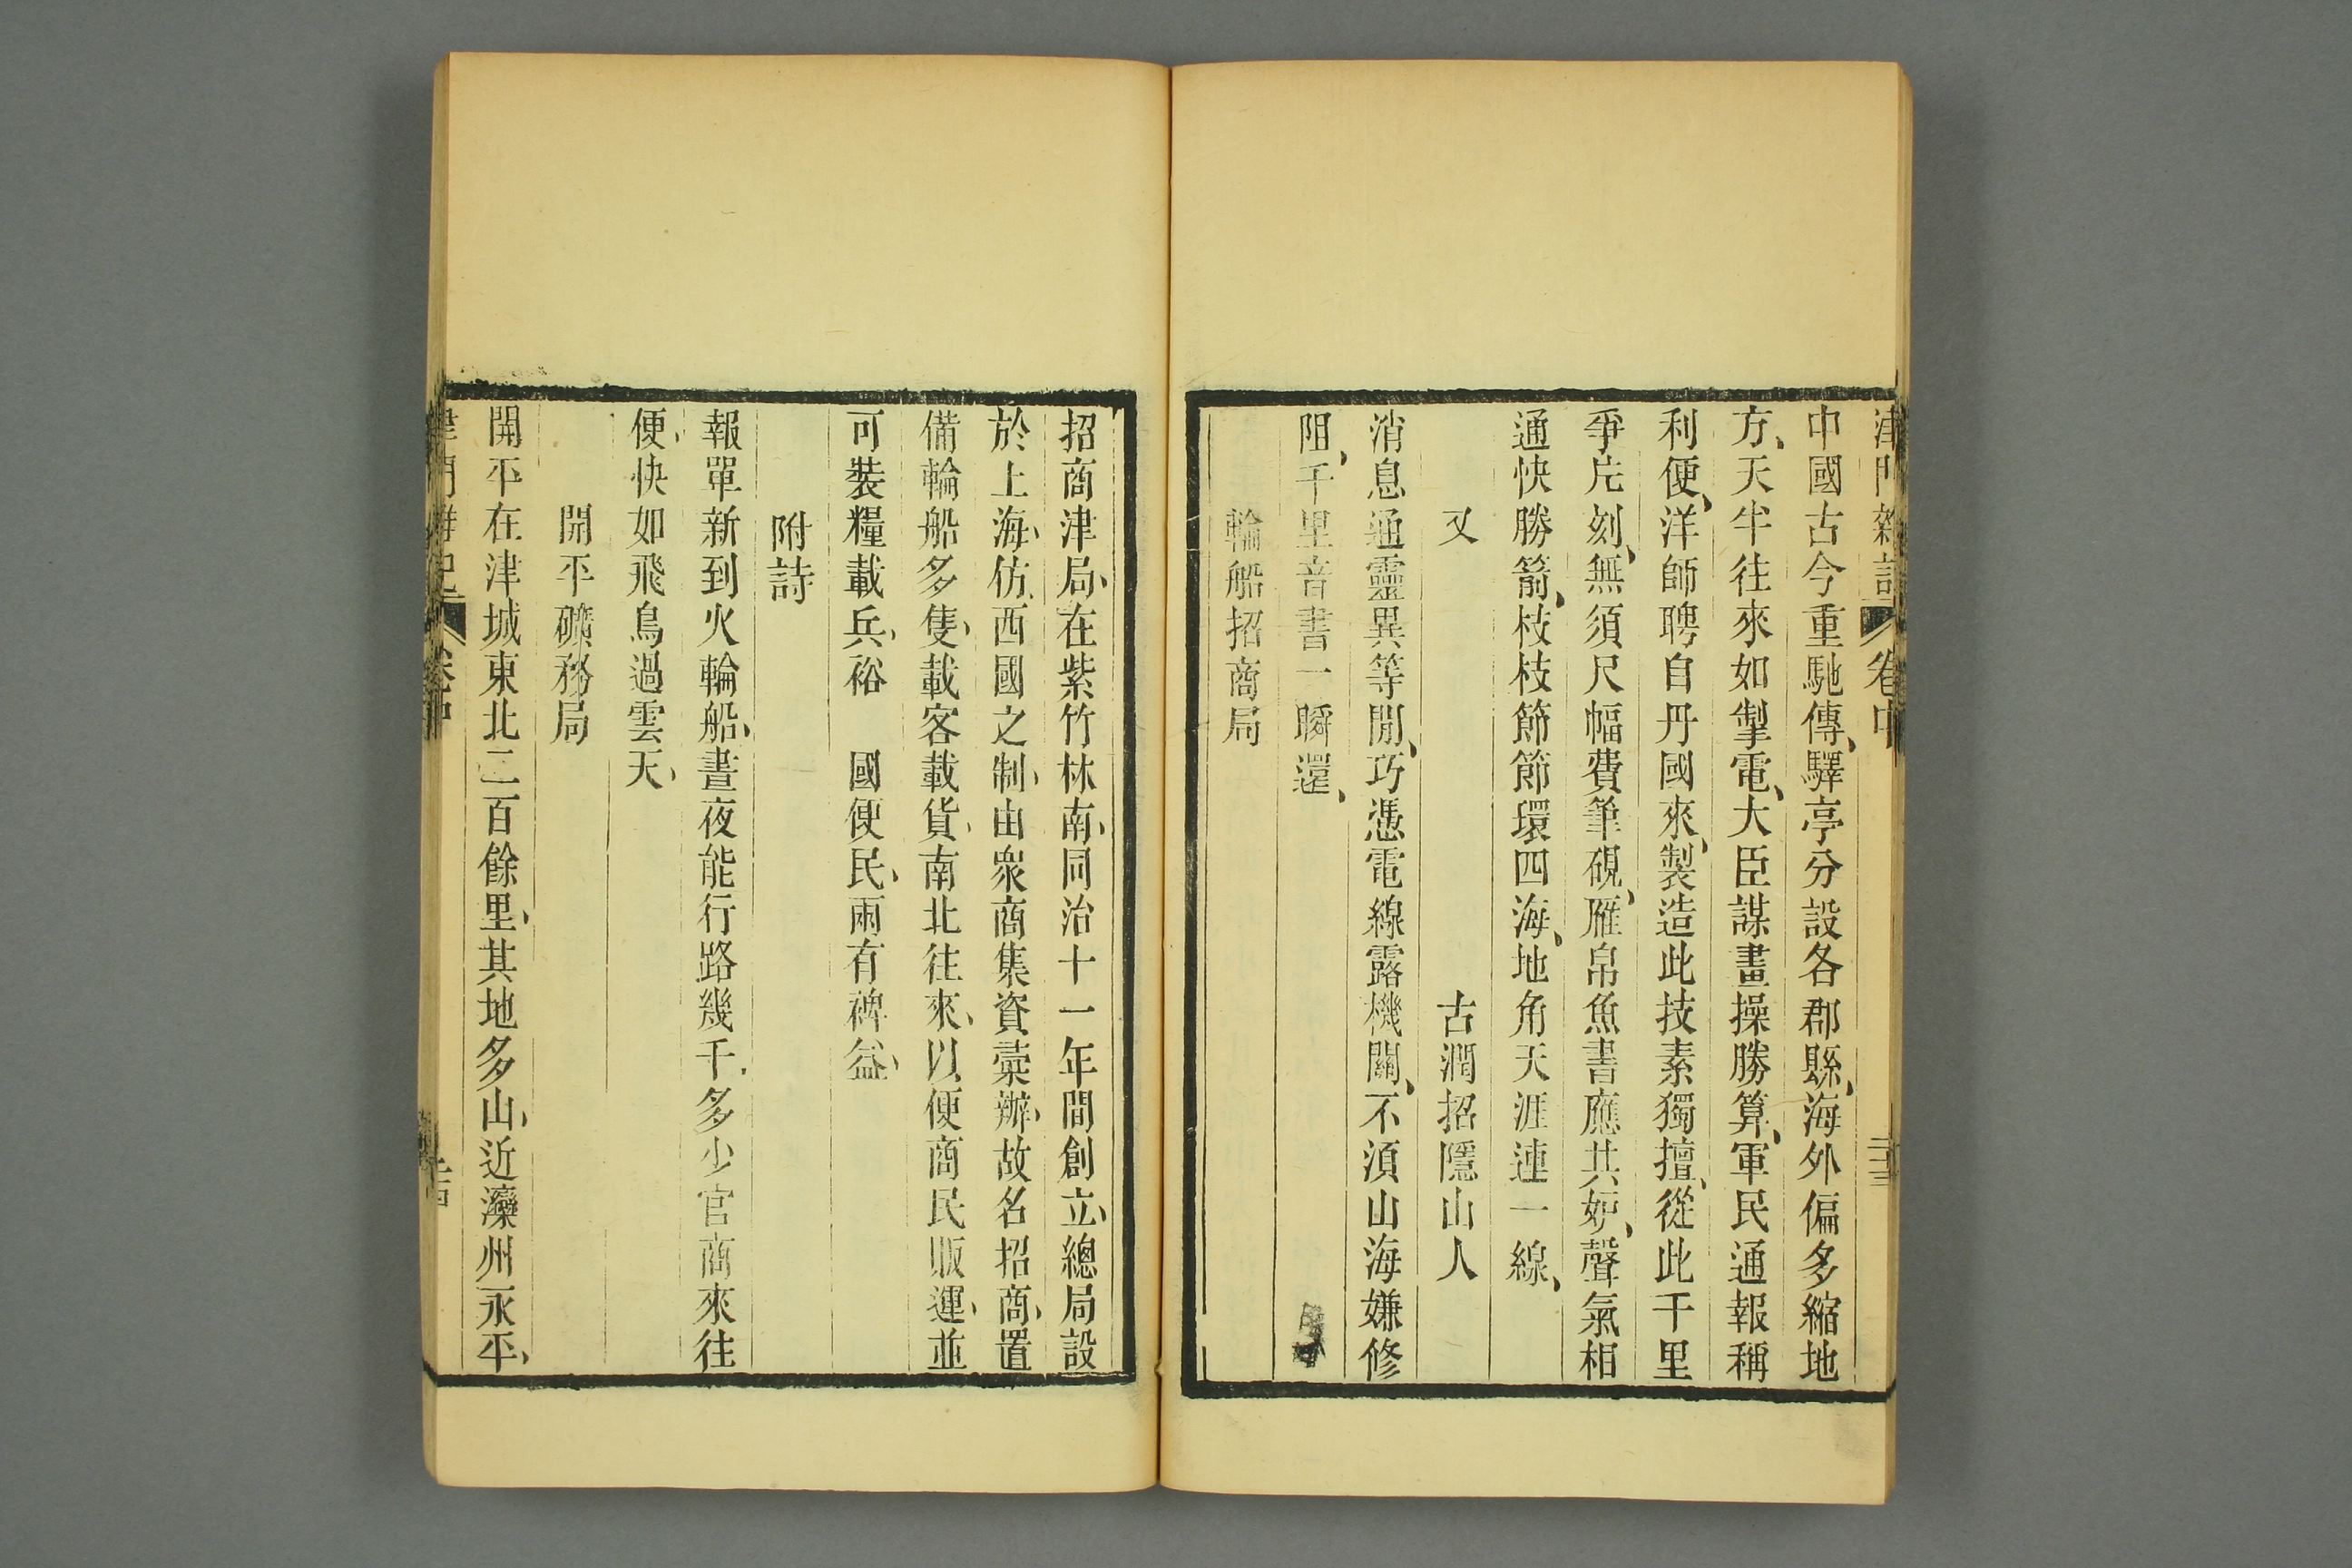 津門雜記 卷中 二十三
中國古今重馳傳、驛亭分設各郡縣、海外偏多縮地
方、天半往來如掣電、大臣謀畫操勝算、軍民通報稱
利便、洋師聘自丹國來、製造此技素獨擅、從此千里
爭片刻、無須尺幅費筆硯、雁帛魚書應共妒、聲氣相
通快勝箭、枝枝節節環四海、地角天涯連一線、
又 古潤招隱山人
消息通靈異等閒、巧憑電線露機關、不須山海嫌修
阻、千里音書一瞬還、
輪船招商局
招商津局、在紫竹林南、同治十一年間創立、總局設
於上海、仿西國之制、由衆商集資稟辦、故名招商、置
備輪船多隻、載客載貨、南北往來、以便商民販運、並
可裝糧載兵、裕 國便民、兩有裨益、
附詩
報單新到火輪船、晝夜能行路幾千、多少官商來往
便、快如飛鳥過雲天、
開平礦務局
開平在津城東北二百餘里、其地多山、近灤州永平、
津門雜記 卷中 二十四